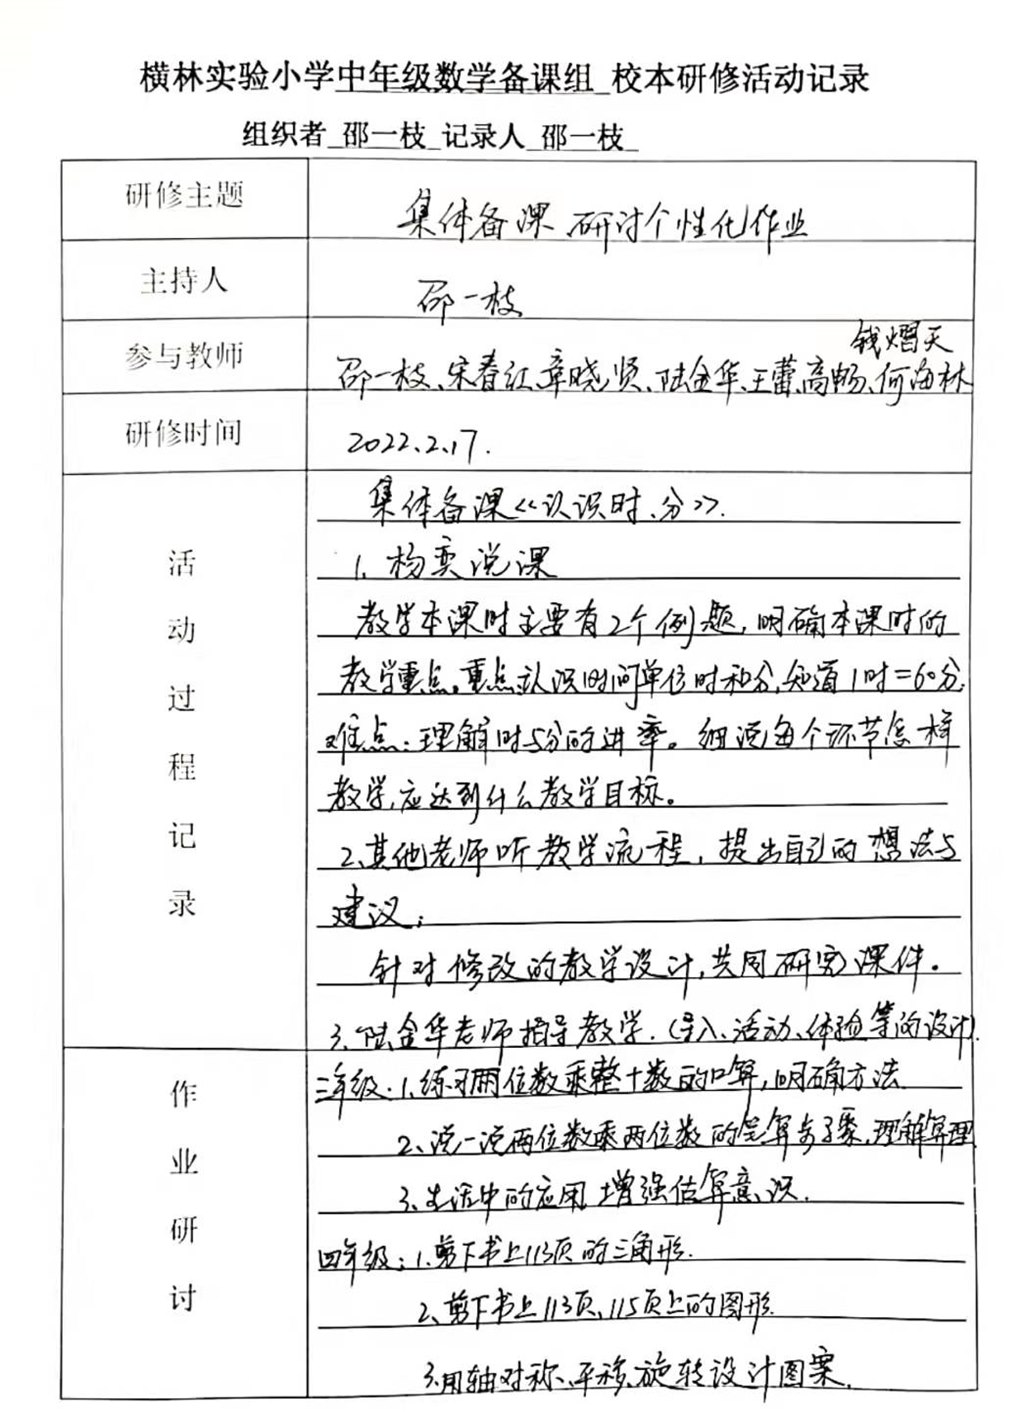 横林实验小学中年级数学备课组 校本研修活动记录
组织者 邵一枝 记录人 邵一枝
研修主题
集体备课 研讨个性化作业
主持人
邵一枝
参与教师
钱熠天
邵一枝、宋春红、章晓贤、陆金华、王蕾、高畅、何海林
研修时间
2022.2.17.
活动过程记录
集体备课《认识时、分》.
1. 杨奕说课
教学本课时主要有2个例题,明确本课时的
教学重点。重点:认识时间单位时和分,知道1时=60分;
难点:理解时与分的进率。细说每个环节怎样
教学,应达到什么教学目标。
2、其他老师听教学流程,提出自己的想法与
建议;
针对修改的教学设计,共同研究课件。
3、陆金华老师指导教学.(导入、活动、体验等的设计).
作业研讨
三年级:1.练习两位数乘整十数的口算,明确方法.
2、说一说两位数乘两位数的笔算步骤,理解算理.
3、生活中的应用 增强估算意识.
四年级:1.剪下书上113页的三角形.
2、剪下书上113页、115页上的图形.
3.用轴对称、平移、旋转设计图案.